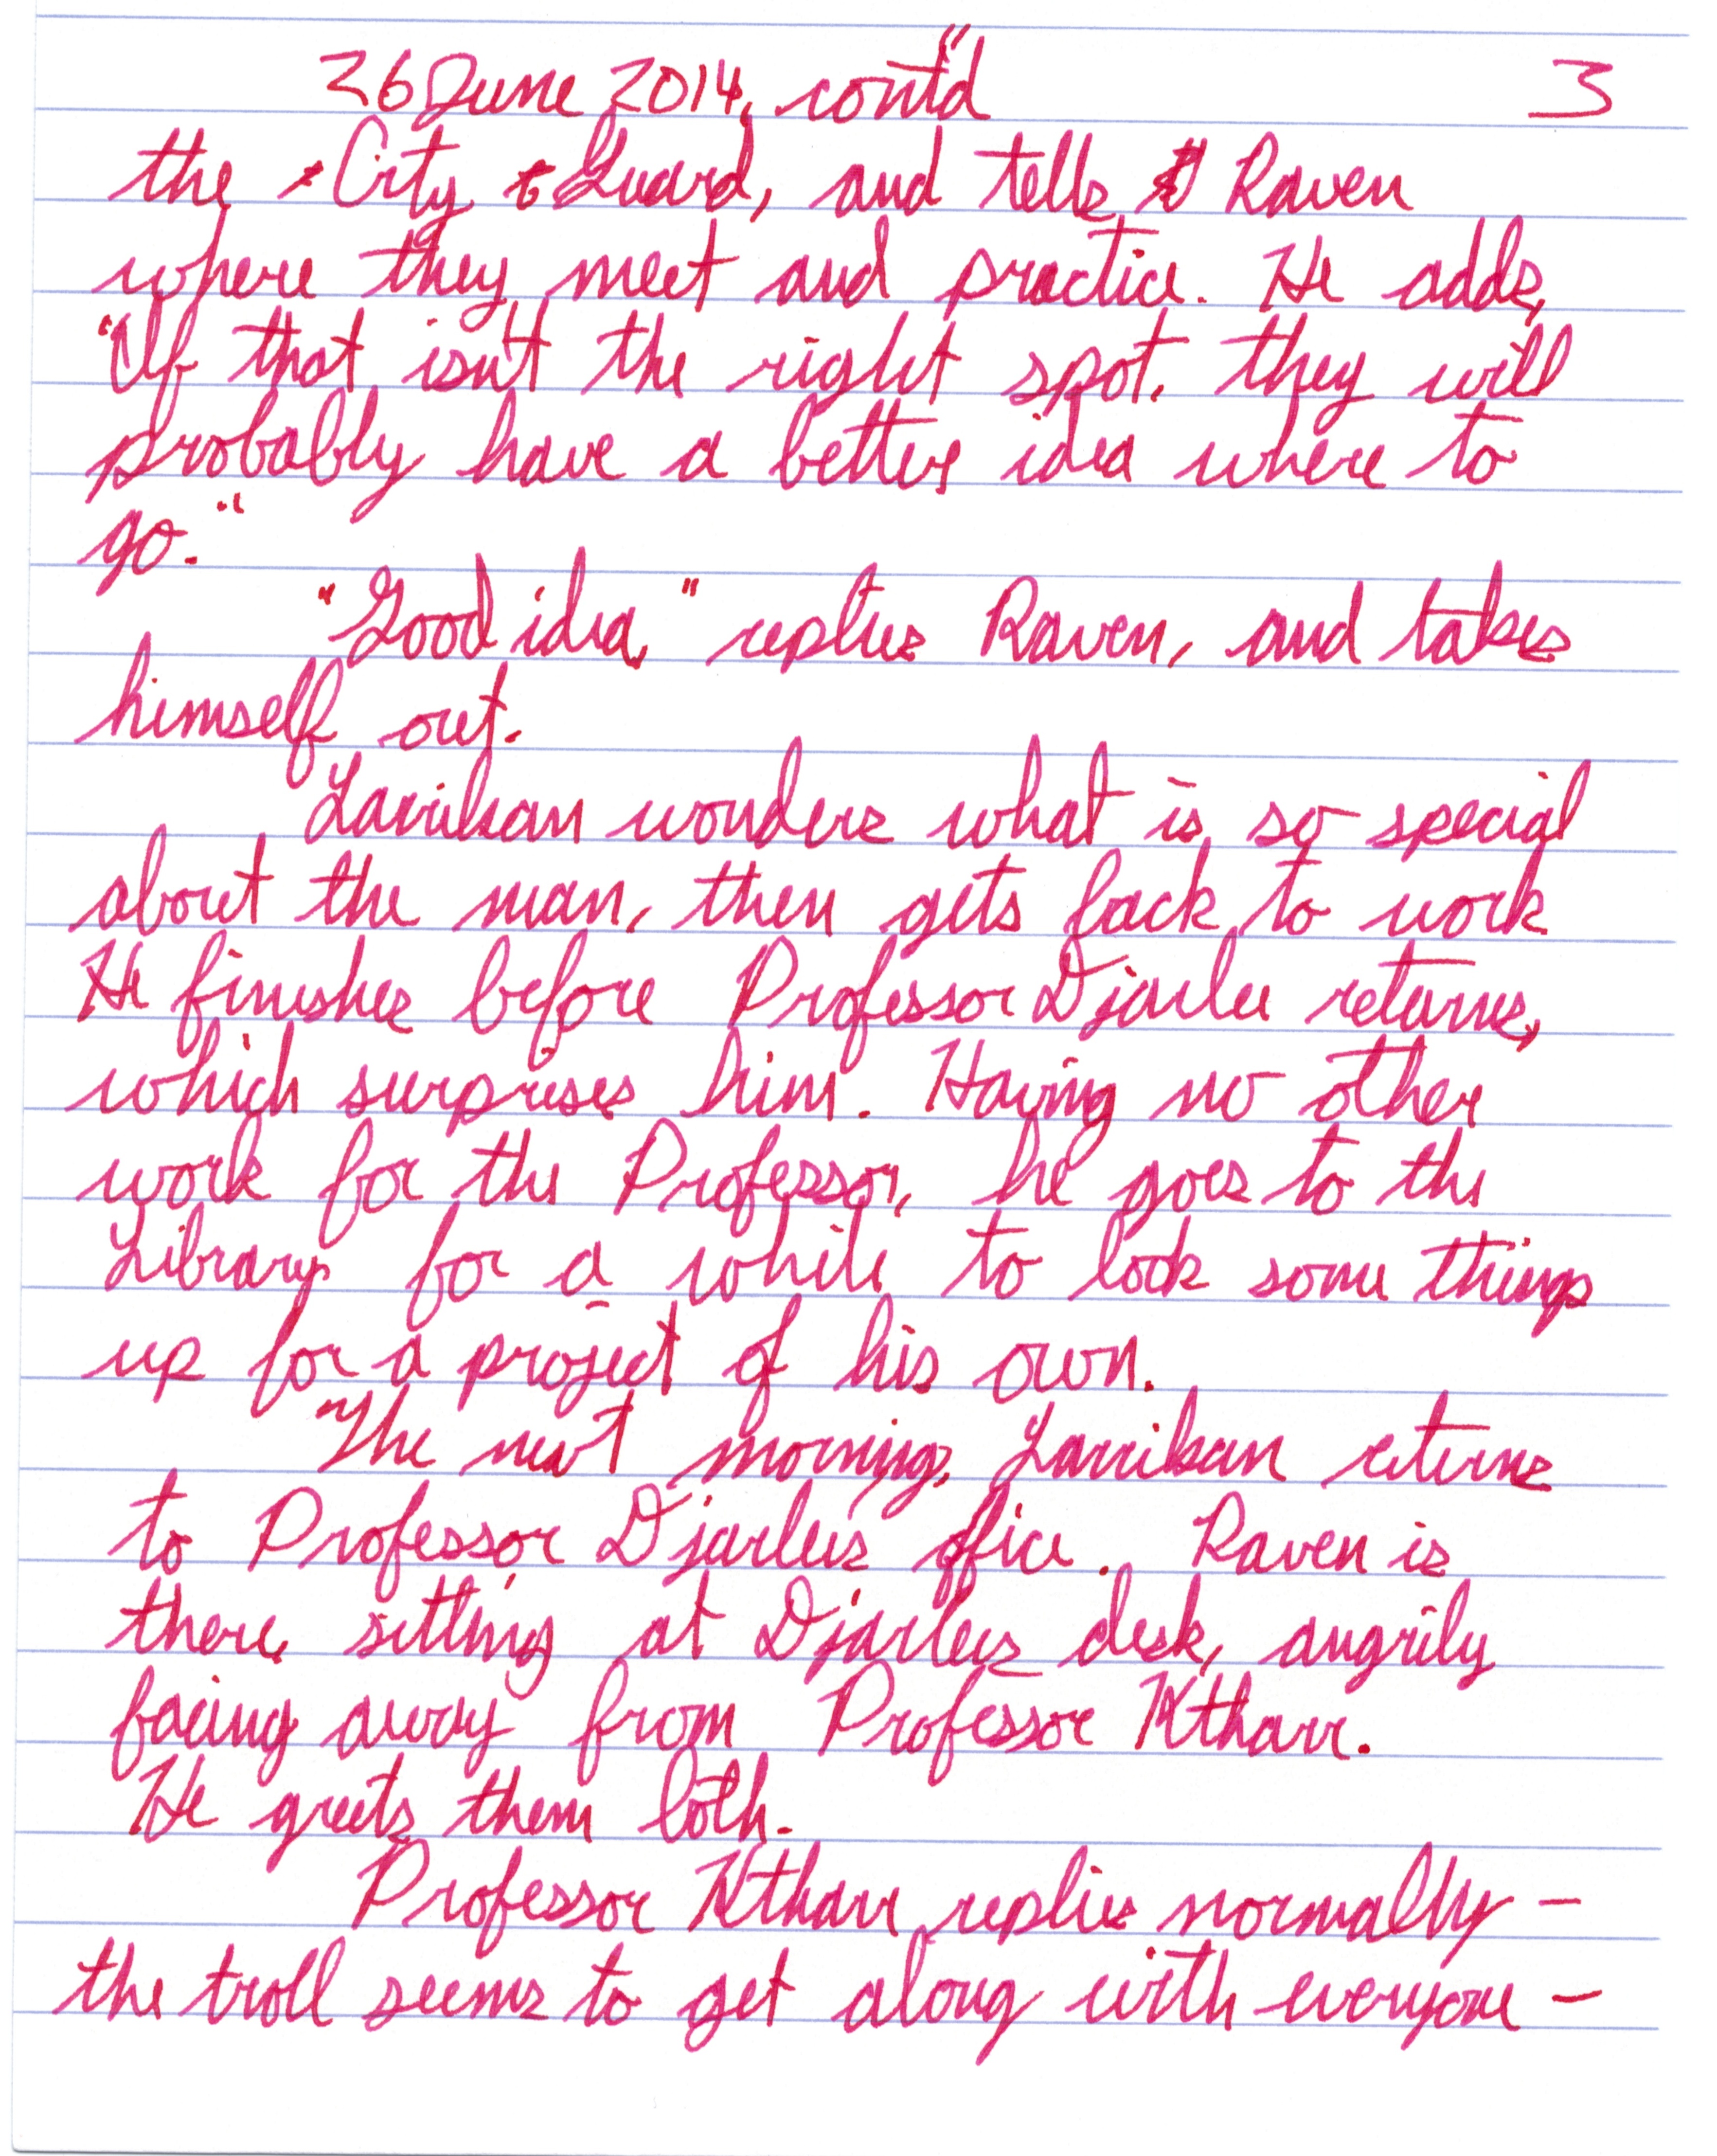 26 June 2014, cont'd 3
the City Guard, and tells Raven
where they meet and practice. He adds,
"If that isn't the right spot, they will
probably have a better idea where to
go."
"Good idea," replies Raven, and takes
himself out.
Larrikan wonders what is so special
about the man, then gets back to work.
He finishes before Professor Djarlee returns,
which surprises him. Having no other
work for the Professor, he goes to the
Library for a while to look some things
up for a project of his own.
The next morning, Larrikan returns
to Professor Djarlee's office. Raven is
there, sitting at Djarlee's desk, angrily
facing away from Professor Ktharr.
He greets them both.
Professor Ktharr replies normally –
the troll seems to get along with everyone –